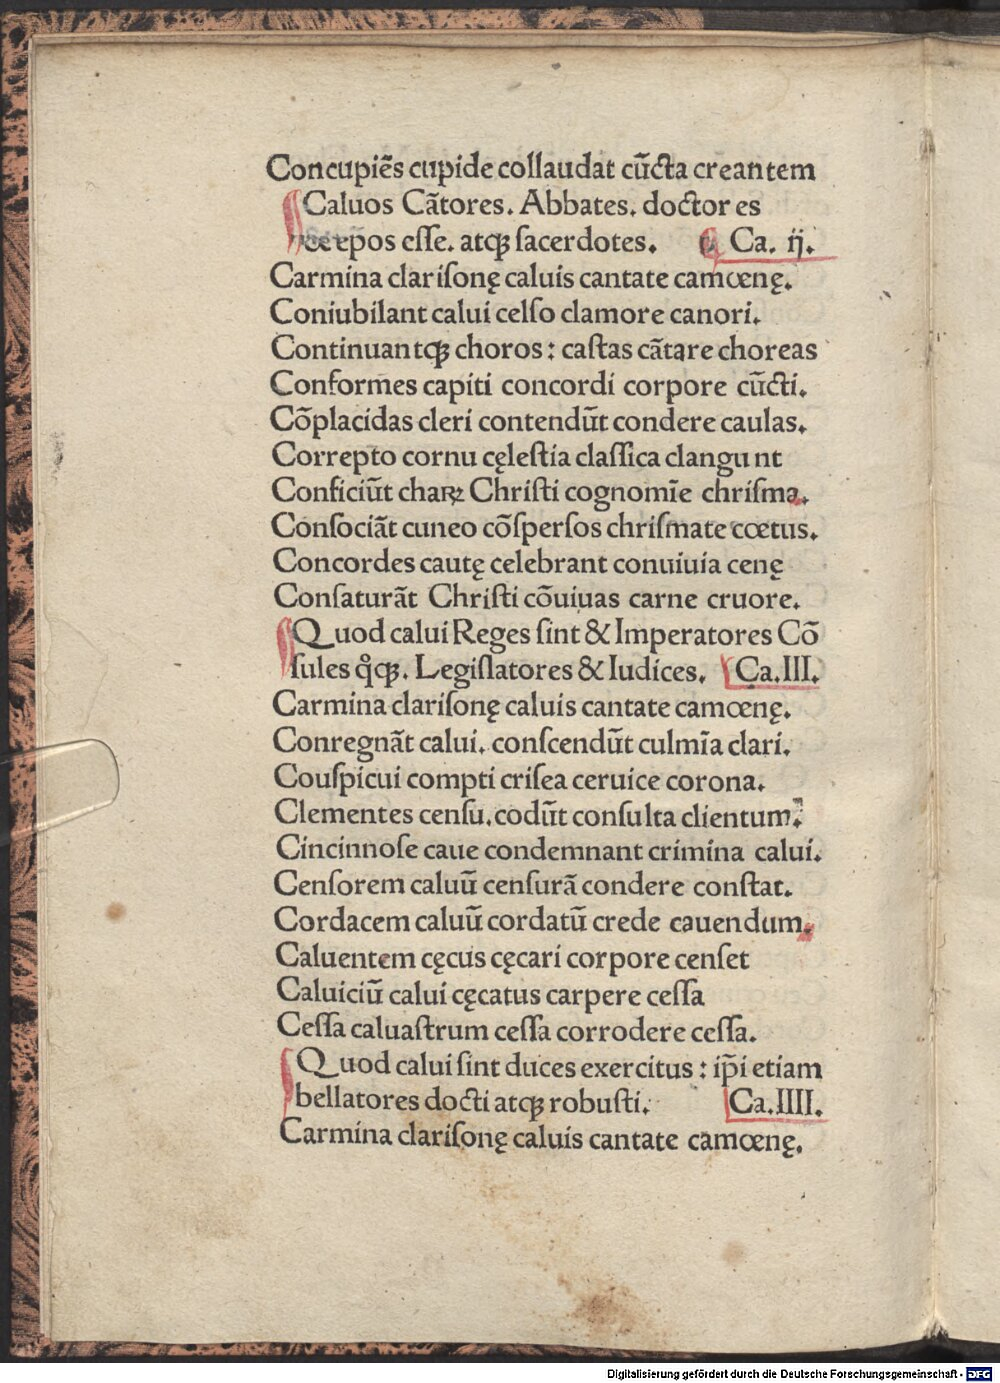 Concupiẽs cupide collaudat cũcta creantem
Caluos Cãtores. Abbates. doctores
epos esse. atqꝫ sacerdotes. Ca. ij.
Carmina clarisonę caluis cantate camœnę.
Coniubilant calui celso clamore canori.
Continuantqꝫ choros: castas cãtare choreas
Conformes capiti concordi corpore cũcti.
Cõplacidas cleri contendũt condere caulas.
Correpto cornu cęlestia classica clangunt
Conficiũt charꝝ Christi cognomĩe chrisma.
Consociãt cuneo cõspersos chrismate cœtus.
Concordes cautę celebrant conuiuia cenę
Consaturãt Christi cõuiuas carne cruore.
Quod calui Reges sint & Imperatores Cõ
sules qͦqꝫ. Legislatores & Iudices. Ca.III.
Carmina clarisonę caluis cantate camœnę.
Conregnãt calui. conscendũt culmĩa clari.
Couspicui compti crisea ceruice corona.
Clementes censu. codũt consulta clientum.
Cincinnose caue condemnant crimina calui.
Censorem caluũ censurã condere constat.
Cordacem caluũ cordatũ crede cauendum.
Caluentem cęcus cęcari corpore censet
Caluiciũ calui cęcatus carpere cessa
Cessa caluastrum cessa corrodere cessa.
Quod calui sint duces exercitus: ip̃i etiam
bellatores docti atqꝫ robusti. Ca.IIII.
Carmina clarisonę caluis cantate camœnę.
Digitalisierung gefördert durch die Deutsche Forschungsgemeinschaft - DFG